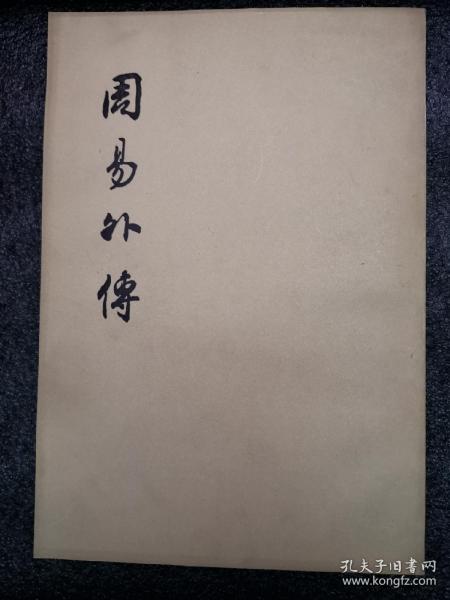 周易外傳
孔夫子旧书网
www.kongfz.com